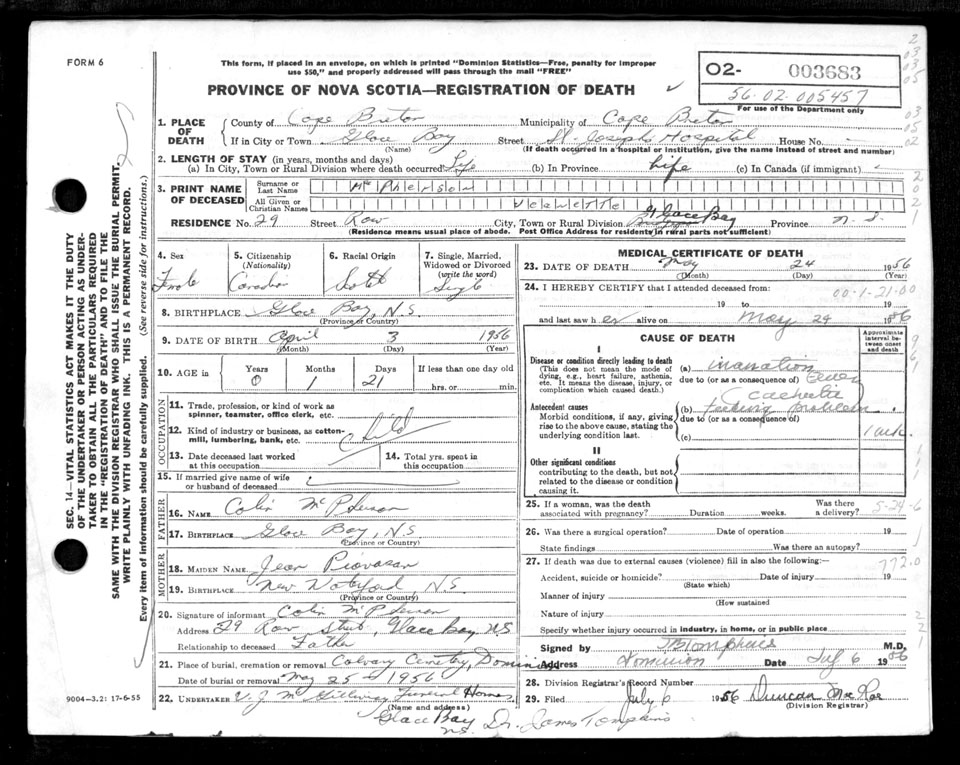 FORM 6
This form, if placed in an envelope, on which is printed "Dominion Statistics—Free, penalty for improper
use $50," and properly addressed will pass through the mail "FREE"
PROVINCE OF NOVA SCOTIA—REGISTRATION OF DEATH
02- 003683
56-02-005457
For use of the Department only
1. PLACE OF DEATH
County of Cape Breton Municipality of Cape Breton
If in City or Town Glace Bay Street St. Joseph Hospital House No.
(Name) (If death occurred in a hospital or institution, give the name instead of street and number)
2. LENGTH OF STAY (in years, months and days)
(a) In City, Town or Rural Division where death occurred Life (b) In Province Life (c) In Canada (if immigrant)
3. PRINT NAME OF DECEASED
Surname or Last Name McPherson
All Given or Christian Names
RESIDENCE No. 29 Street Row City, Town or Rural Division Glace Bay Province N.S.
(Residence means usual place of abode. Post Office Address for residents in rural parts not sufficient)
4. Sex
Female
5. Citizenship
(Nationality)
Canadian
6. Racial Origin
Scotch
7. Single, Married,
Widowed or Divorced
(write the word)
Single
8. BIRTHPLACE Glace Bay, N.S.
(Province or Country)
9. DATE OF BIRTH April 3 1956
(Month) (Day) (Year)
10. AGE in Years Months Days If less than one day old
0 1 21 hrs. or min.
OCCUPATION
11. Trade, profession, or kind of work as
spinner, teamster, office clerk, etc.
12. Kind of industry or business, as cotton-
mill, lumbering, bank, etc.
Child
13. Date deceased last worked
at this occupation
14. Total yrs. spent in
this occupation
15. If married give name of wife
or husband of deceased
FATHER
16. NAME Colin McPherson
17. BIRTHPLACE Glace Bay, N.S.
(Province or Country)
MOTHER
18. MAIDEN NAME Jean Piovesan
19. BIRTHPLACE New Waterford N.S.
(Province or Country)
20. Signature of informant Colin McPherson
Address 29 Row Street, Glace Bay, N.S.
Relationship to deceased Father
21. Place of burial, cremation or removal Calvary Cemetery, Dominion
Date of burial or removal May 25 - 1956
22. UNDERTAKER V.J. McGillivray Funeral Homes
(Name and address)
Glace Bay
N.S.
Dr. James Tompkins
MEDICAL CERTIFICATE OF DEATH
23. DATE OF DEATH May 24 1956
(Month) (Day)
24. I HEREBY CERTIFY that I attended deceased from:
00-1-21-00
19 to 19
and last saw her alive on May 24 1956
CAUSE OF DEATH
Approximate interval between onset and death
I
Disease or condition directly leading to death
(This does not mean the mode of
dying, e.g., heart failure, asthenia,
etc. It means the disease, injury, or
complication which caused death.)
(a) inanation
due to (or as a consequence of)
Antecedent causes
Morbid conditions, if any, giving
rise to the above cause, stating the
underlying condition last.
(b) feeding problem
due to (or as a consequence of)
(c)
II
Other significant conditions
contributing to the death, but not
related to the disease or condition
causing it.
25. If a woman, was the death
associated with pregnancy? Duration weeks. Was there
a delivery?
5-24-6
26. Was there a surgical operation? Date of operation 19
State findings Was there an autopsy?
27. If death was due to external causes (violence) fill in also the following:—
772.0
Accident, suicide or homicide? Date of injury 19
(State which)
Manner of injury
(How sustained)
Nature of injury
Specify whether injury occurred in industry, in home, or in public place
Signed by J Tompkins M.D.
Address Dominion Date July 6 1956
28. Division Registrar's Record Number
29. Filed July 6 1956 Duncan MacRae
(Division Registrar)
SEC. 14—VITAL STATISTICS ACT MAKES IT THE DUTY
OF THE UNDERTAKER OR PERSON ACTING AS UNDER-
TAKER TO OBTAIN ALL THE PARTICULARS REQUIRED
IN THE "REGISTRATION OF DEATH" AND TO FILE THE
SAME WITH THE DIVISION REGISTRAR WHO SHALL ISSUE THE BURIAL PERMIT.
WRITE PLAINLY WITH UNFADING INK. THIS IS A PERMANENT RECORD.
Every item of information should be carefully supplied. (See reverse side for instructions.)
9004—3.2: 17-6-55